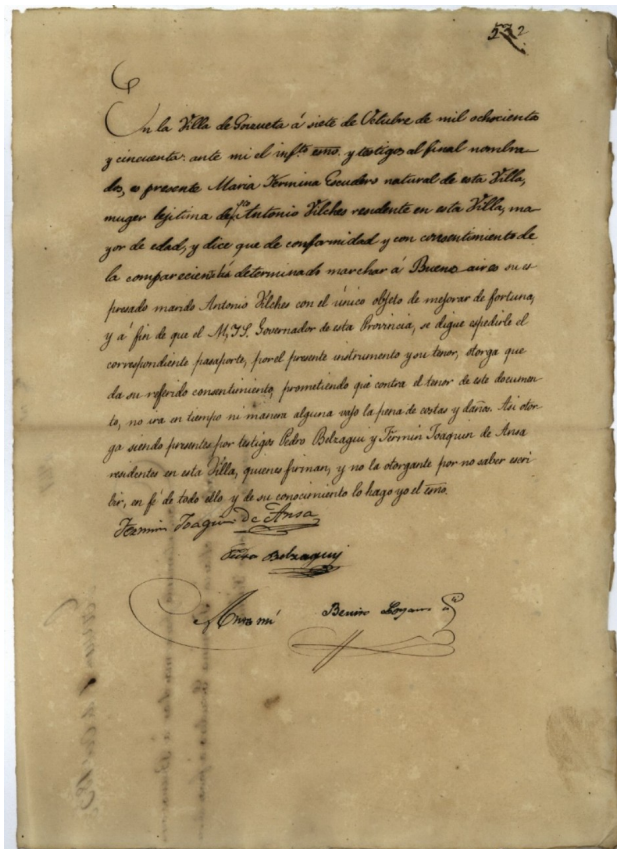 532
En la Villa de Goizueta á siete de Octubre de mil ochociento
y cincuenta: ante mi el infto. esno. y testigos al final nombra-
dos, es presente Maria Fermina Escudero natural de esta Villa,
muger lejitima de Antonio Vilches residente en esta Villa, ma-
yor de edad, y dice que de conformidad y con consentimiento de
la compareciente há determinado marchar á Buenos aires su es
presado marido Antonio Vilches con el único objeto de mejorar de fortuna,
y á fin de que el M.Y.S. Governador de esta Provincia, se digue espedirle el
correspondiente pasaporte, por el presente instrumento y su tenor, otorga que
da su referido consentimiento, prometiendo que contra el tenor de este documen-
to, no ira en tiempo ni manera alguna vajo la pena de costas y daños. Asi otor-
ga siendo presentes por testigos Pedro Belzagui y Fermin Joaquin de Ansa
residentes en esta Villa, quienes firman, y no la otorgante por no saber escri-
bir, en fé de todo ello, y de su conocimiento lo hago yo el esno.
Fermin Joaquin De Ansa
Pedro Belzagui
Ante mí Benito Loyarte